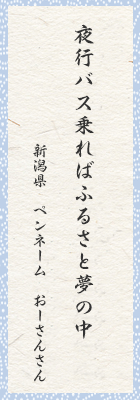 夜行バス乗ればふるさと夢の中
新潟県 ペンネーム おーさんさん